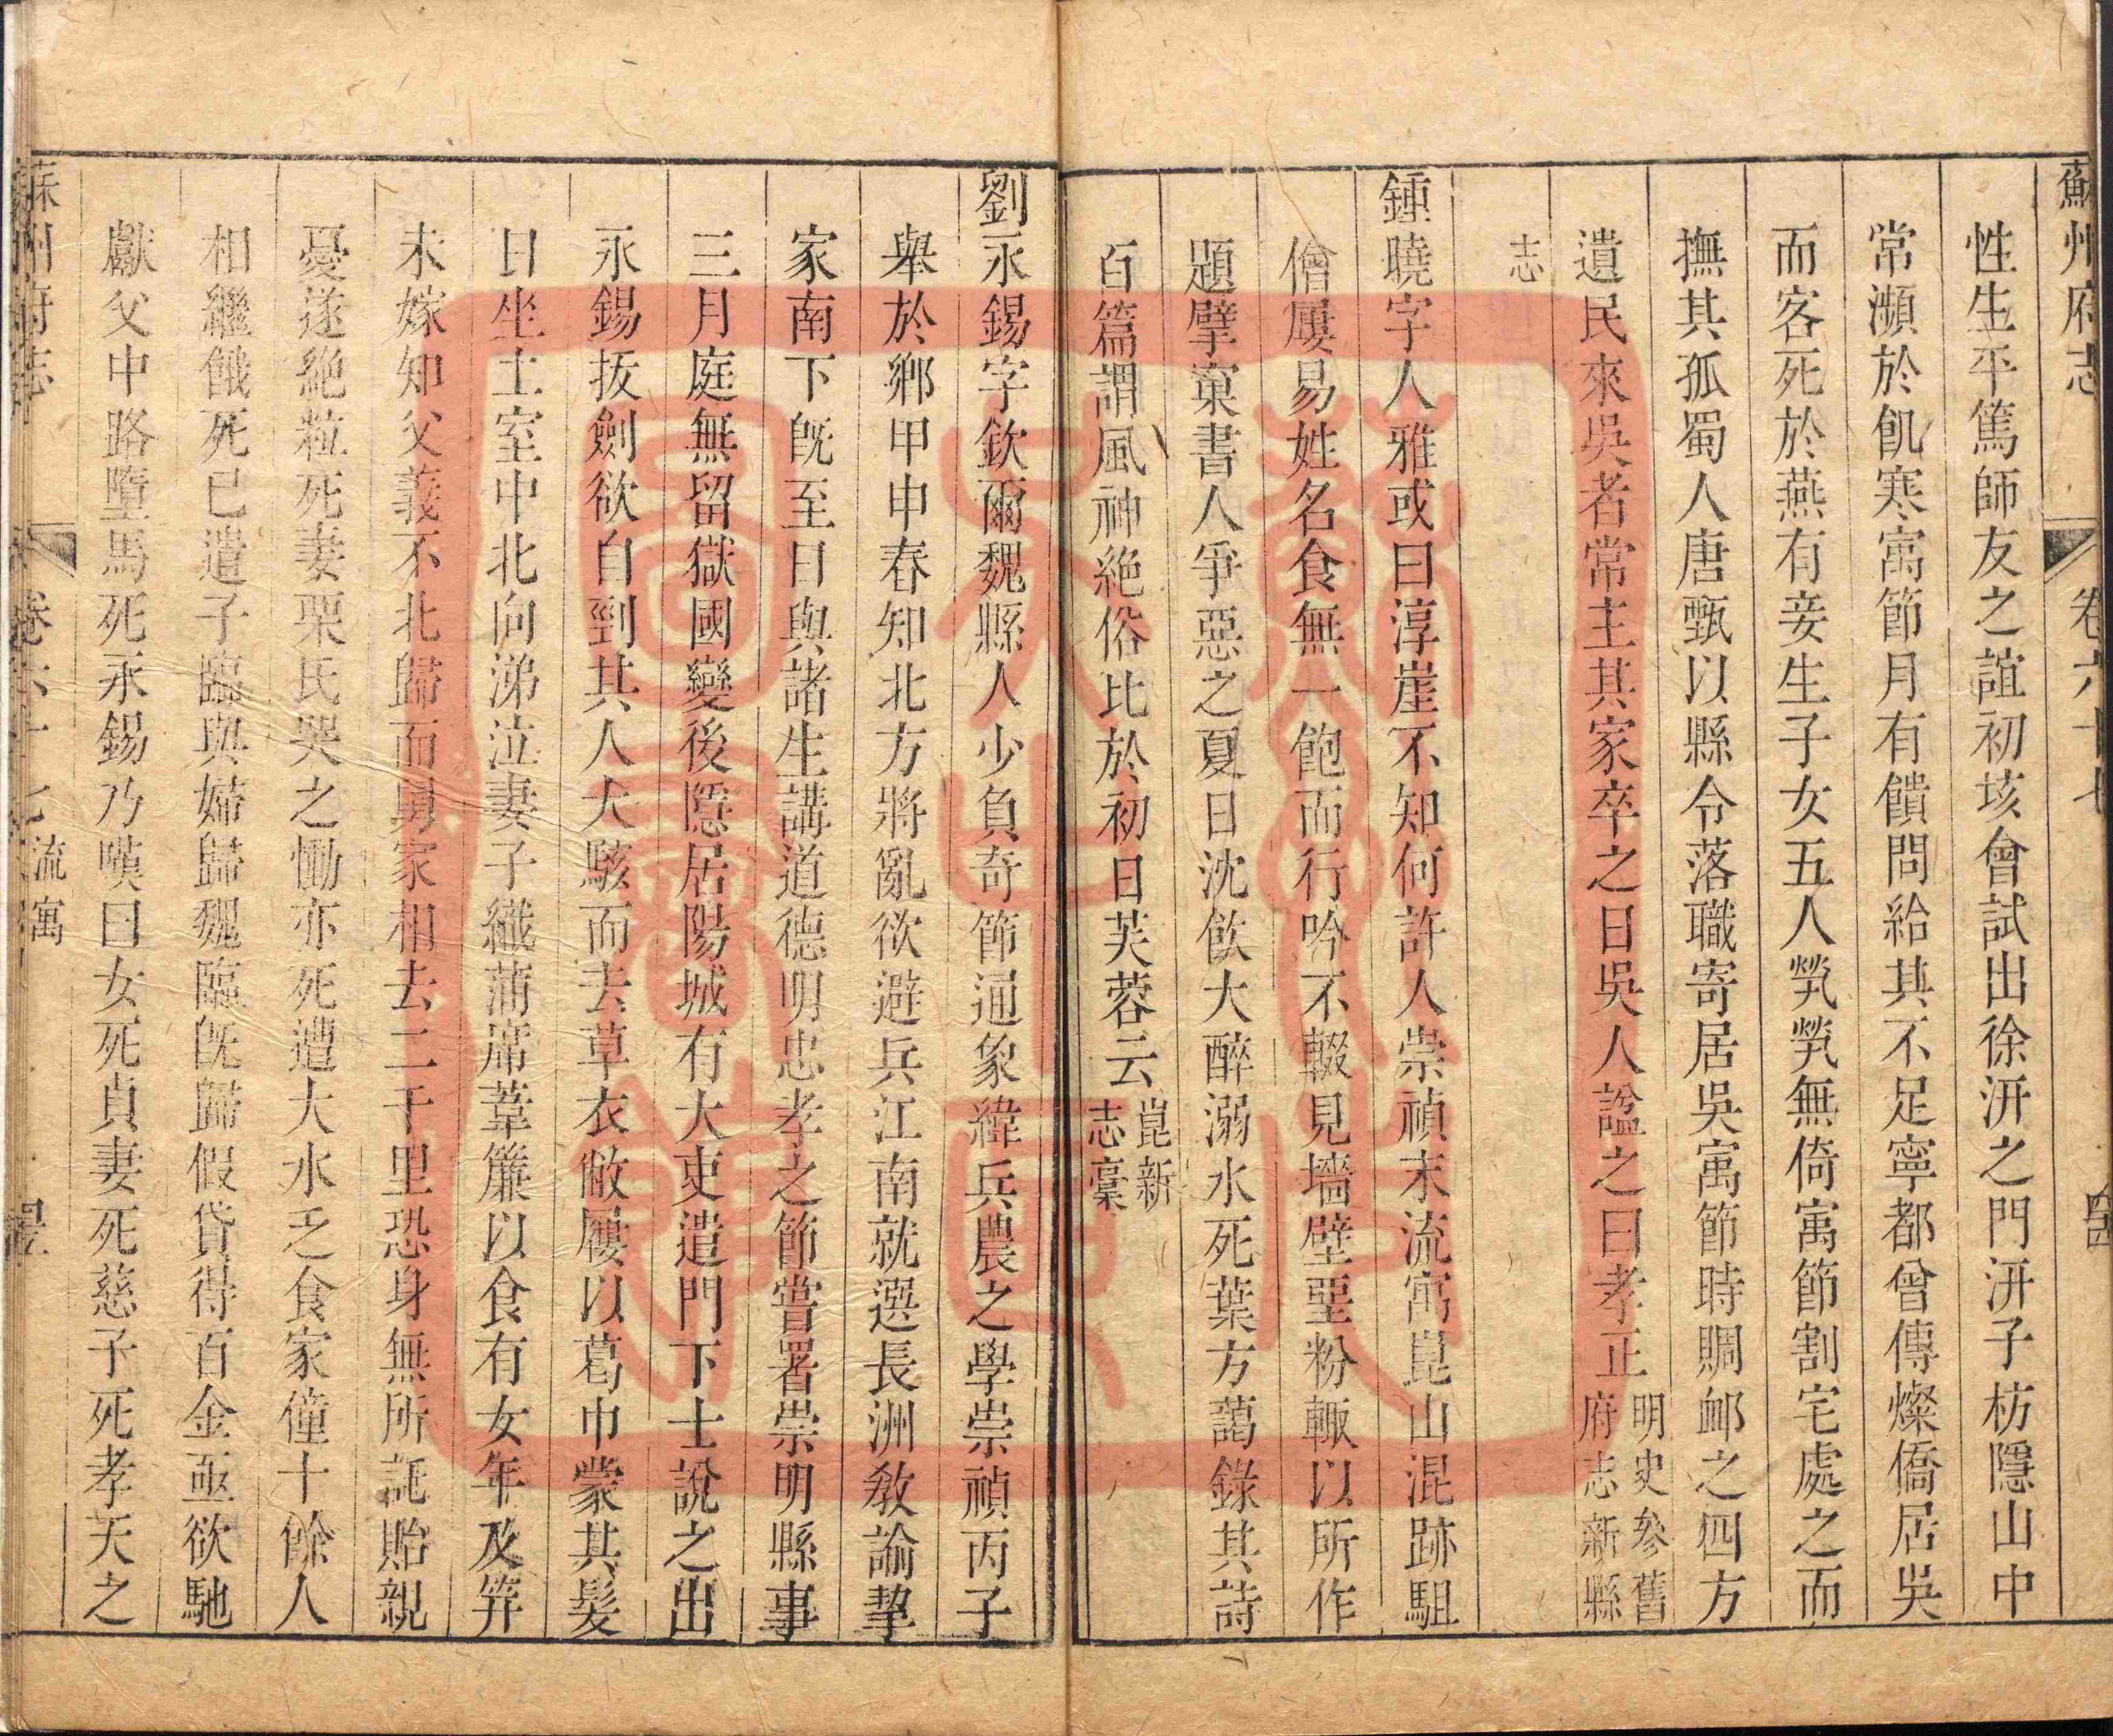 蘇州府志 卷六十七
性生平篤師友之誼初垓會試出徐汧之門汧子枋隱山中
常瀕於飢寒寓節月有饋問給其不足寧都曾傳燦僑居吳
而客死於燕有妾生子女五人煢煢無倚寓節割宅處之而
撫其孤蜀人唐甄以縣令落職寄居吳寓節時賙衈之四方
遺民來吳者常主其家卒之日吳人諡之曰孝正明史參舊府志新縣
志
鍾曉字人雅或曰淳崖不知何許人崇禎末流寓崑山混跡駔
儈屢易姓名食無一飽而行吟不輟見墻壁堊粉輒以所作
題擘窠書人爭惡之夏日沈飲大醉溺水死葉方藹錄其詩
百篇謂風神絕俗比於初日芙蓉云崑新志稾
劉永錫字欽爾魏縣人少負奇節通象緯兵農之學崇禎丙子
舉於鄉甲申春知北方將亂欲避兵江南就選長洲敎諭挈
家南下旣至日與諸生講道德明忠孝之節嘗署崇明縣事
三月庭無留獄國變後隱居陽城有大吏遣門下士說之出
永錫拔劍欲自剄其人大駭而去草衣敝屨以葛巾蒙其髮
日坐土室中北向涕泣妻子織蒲席葦簾以食有女年及笄
未嫁知父義不北歸而舅家相去二千里恐身無所託貽親
憂遂絕粒死妻栗氏哭之慟亦死遭大水乏食家僮十餘人
相繼餓死已遣子臨與婦歸魏臨旣歸假貸得百金亟欲馳
獻父中路墮馬死永錫乃嘆曰女死貞妻死慈子死孝天之
蘇州府志 卷六十七 流寓